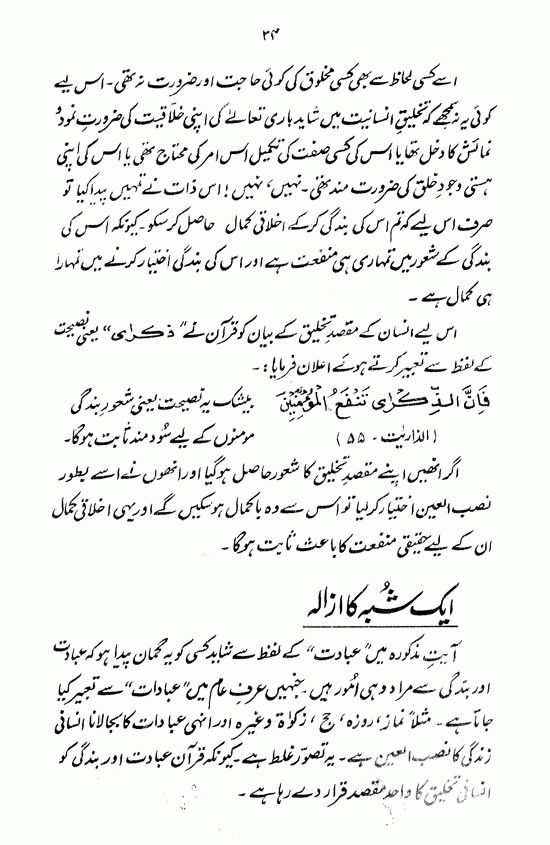 ۳۴
اسے کسی لحاظ سے بھی کسی مخلوق کی کوئی حاجت اور ضرورت نہ تھی۔ اس لیے
کوئی یہ نہ سمجھے کہ تخلیقِ انسانیت میں شاید باری تعالےٰ کی اپنی خلاقیت کی ضرورتِ نمود و
نمائش کا دخل تھا یا اس کی کسی صفت کی تکمیل اس امر کی محتاج تھی یا اس کی اپنی
ہستی وجودِ خلق کی ضرورت مند تھی۔ نہیں، نہیں! اس ذات نے تمہیں پیدا کیا تو
صرف اس لیے کہ تم اس کی بندگی کرکے اخلاقی کمال حاصل کر سکو۔ کیونکہ اس کی
بندگی کے شعور میں تمہاری ہی منفعت ہے اور اس کی بندگی اختیار کرنے میں تمہارا
ہی کمال ہے۔
اس لیے انسان کے مقصدِ تخلیق کے بیان کو قرآن نے ”ذکرٰی“ یعنی نصیحت
کے لفظ سے تعبیر کرتے ہوئے اعلان فرمایا:۔
فَاِنَّ الذِّكْرٰى تَنْفَعُ الْمُؤْمِنِيْنَ بیشک یہ نصیحت یعنی شعورِ بندگی
(الذاریت۔ ۵۵) مومنوں کے لیے سُود مند ثابت ہوگا۔
اگر انھیں اپنے مقصدِ تخلیق کا شعور حاصل ہو گیا اور انھوں نے اسے بطور
نصب العین اختیار کر لیا تو اس سے وہ باکمال ہو سکیں گے اور یہی اخلاقی کمال
ان کے لیے حقیقی منفعت کا باعث ثابت ہوگا۔
ایک شُبہ کا ازالہ
آیتِ مذکورہ میں ”عبادت“ کے لفظ سے شاید کسی کو یہ گمان پیدا ہو کہ عبادت
اور بندگی سے مراد وہی اُمور ہیں۔ جنہیں عرفِ عام میں ”عبادات“ سے تعبیر کیا
جاتا ہے۔ مثلاً نماز، روزہ، حج، زکوٰۃ وغیرہ اور انہی عبادات کا بجا لانا انسانی
زندگی کا نصب العین ہے۔ یہ تصوّر غلط ہے۔ کیونکہ قرآن عبادت اور بندگی کو
انسانی تخلیق کا واحد مقصد قرار دے رہا ہے۔